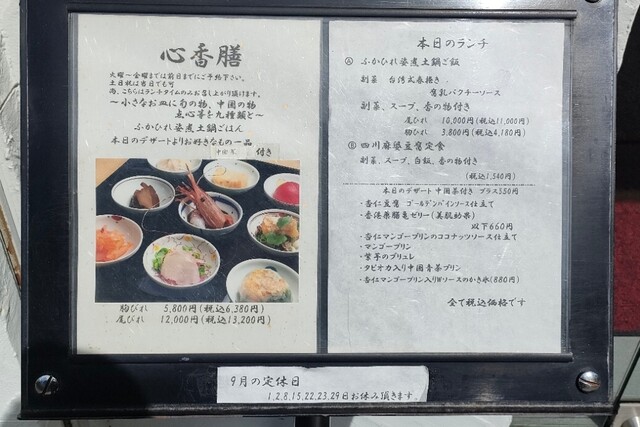 心香膳
火曜~金曜までは前日までにご予約下さい。
土日祝は当日でも可
尚、こちらはランチタイムのみお召し上がり頂けます。
~小さなお皿に旬の物、中国の物
点心等を九種類と~
ふかひれ姿煮土鍋ごはん
本日のデザートよりお好きなもの一品
中国茶 付き
胸びれ 5,800円(税込6,380円)
尾びれ 12,000円(税込13,200円)
本日のランチ
Ⓐ ふかひれ姿煮土鍋ご飯
副菜 台湾式春捲き
腐乳パクチーソース
副菜、スープ、香の物付き
尾びれ 10,000円(税込11,000円)
胸びれ 3,800円(税込4,180円)
Ⓑ 四川麻婆豆腐定食
副菜、スープ、白飯、香の物付き
(税込1,540円)
本日のデザート 中国茶付き プラス550円
・杏仁豆腐 ゴールデンパインソース仕立て
・香港薬膳亀ゼリー(美肌効果)
以下660円
・杏仁マンゴープリンのココナッツソース仕立て
・マンゴープリン
・紫芋のブリュレ
・タピオカ入り中国青茶プリン
・杏仁マンゴープリン入りWソースのかき氷(880円)
全て税込価格です
9月の定休日
1.2.8.15.22.23.29日お休み頂きます。